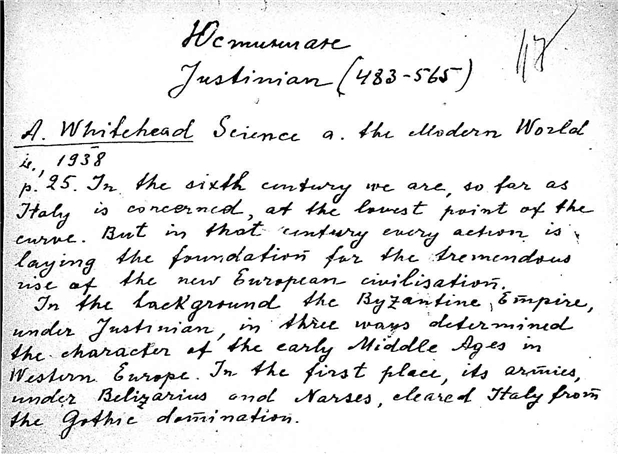 Юстиниан
Justinian (483-565)
A. Whitehead Science a. the Modern World
1938
p. 25. In the sixth century we are, so far as
Italy is concerned, at the lowest point of the
curve. But in that century every action is
laying the foundation for the tremendous
rise of the new European civilisation.
In the background the Byzantine Empire,
under Justinian, in three ways determined
the character of the early Middle Ages in
Western Europe. In the first place, its armies,
under Belizarius and Narses, cleared Italy from
the Gothic domination.